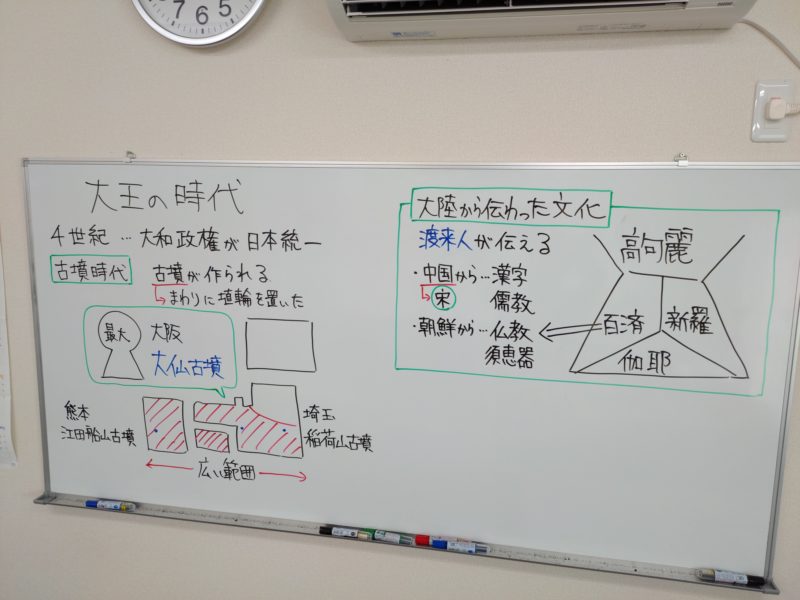 7 6 5
大王の時代
4世紀…大和政権が日本統一
古墳時代 古墳が作られる
まわりに埴輪を置いた
最大 大阪
大仏古墳
熊本
江田船山古墳
埼玉
稲荷山古墳
広い範囲
大陸から伝わった文化
渡来人が伝える
・中国から…漢字
宋 儒教
・朝鮮から…仏教
須恵器
高句麗
百済 新羅
伽耶